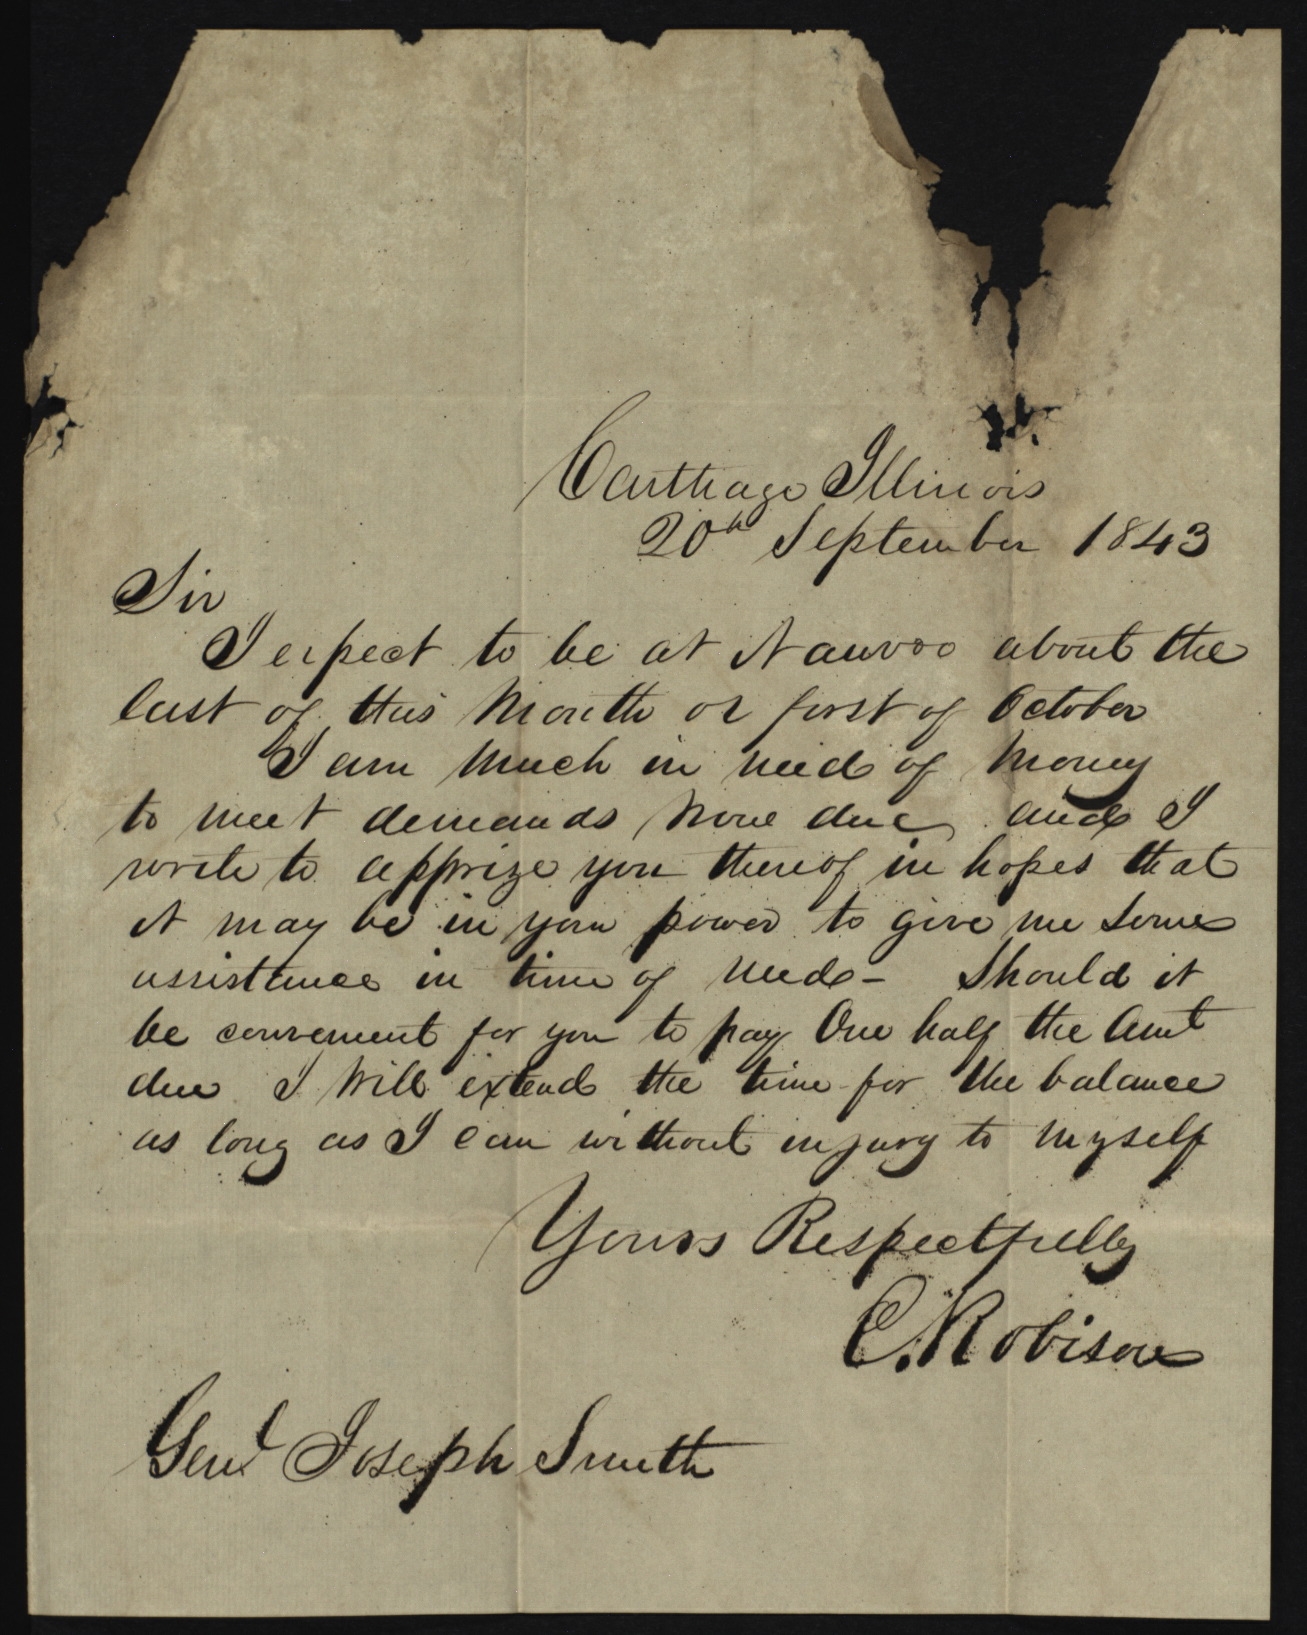 Carthage Illinois
20th September 1843
Sir
I expect to be at Nauvoo about the
last of this Month or first of October
I am Much in need of Money
to meet demands Now due and I
write to apprize you thereof in hopes that
it may be in your power to give me some
assistance in time of need - Should it
be convenient for you to pay One half the Amt
due I Will extend the time for the balance
as long as I can without injury to Myself
Yours Respectfully
C. Robison
Genl Joseph Smith